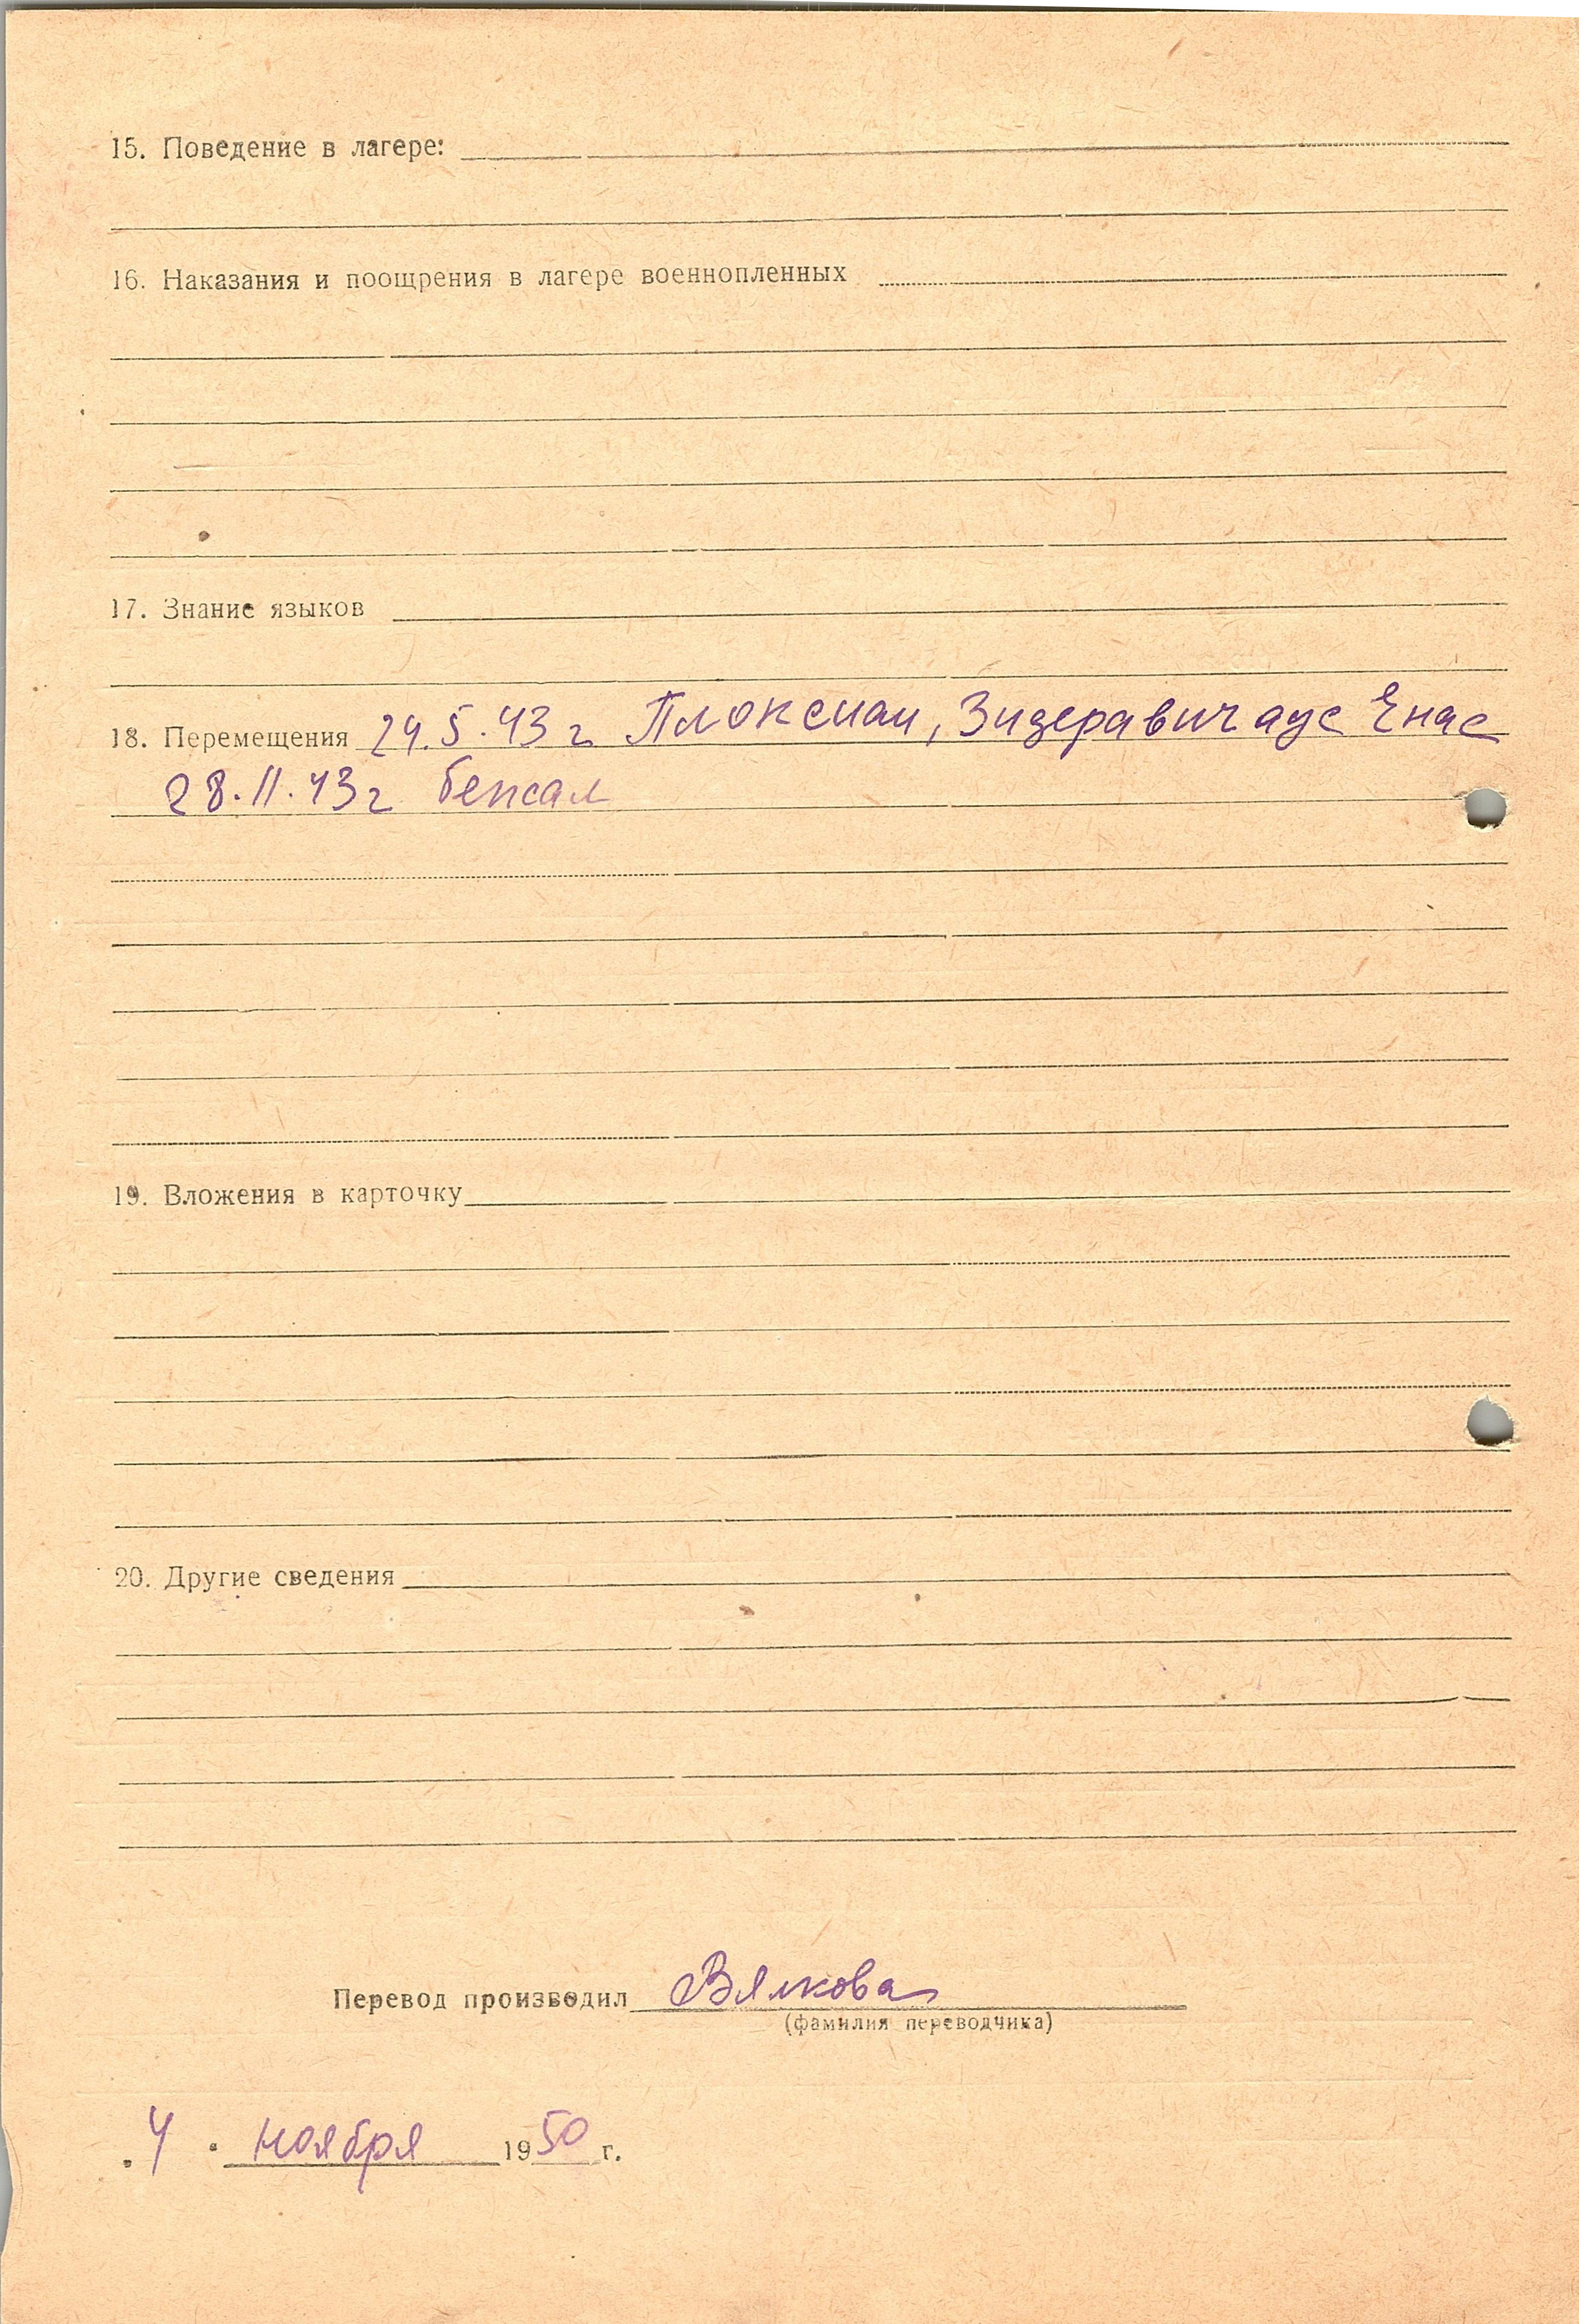 15. Поведение в лагере:
16. Наказания и поощрения в лагере военнопленных
17. Знание языков
18. Перемещения 24.5.43 г Плоксиаи, Зидеравичаус Енас
28.11.43 г
19. Вложения в карточку
20. Другие сведения
Перевод производил Вялкова
(фамилия переводчика)
„4" ноября 1950 г.